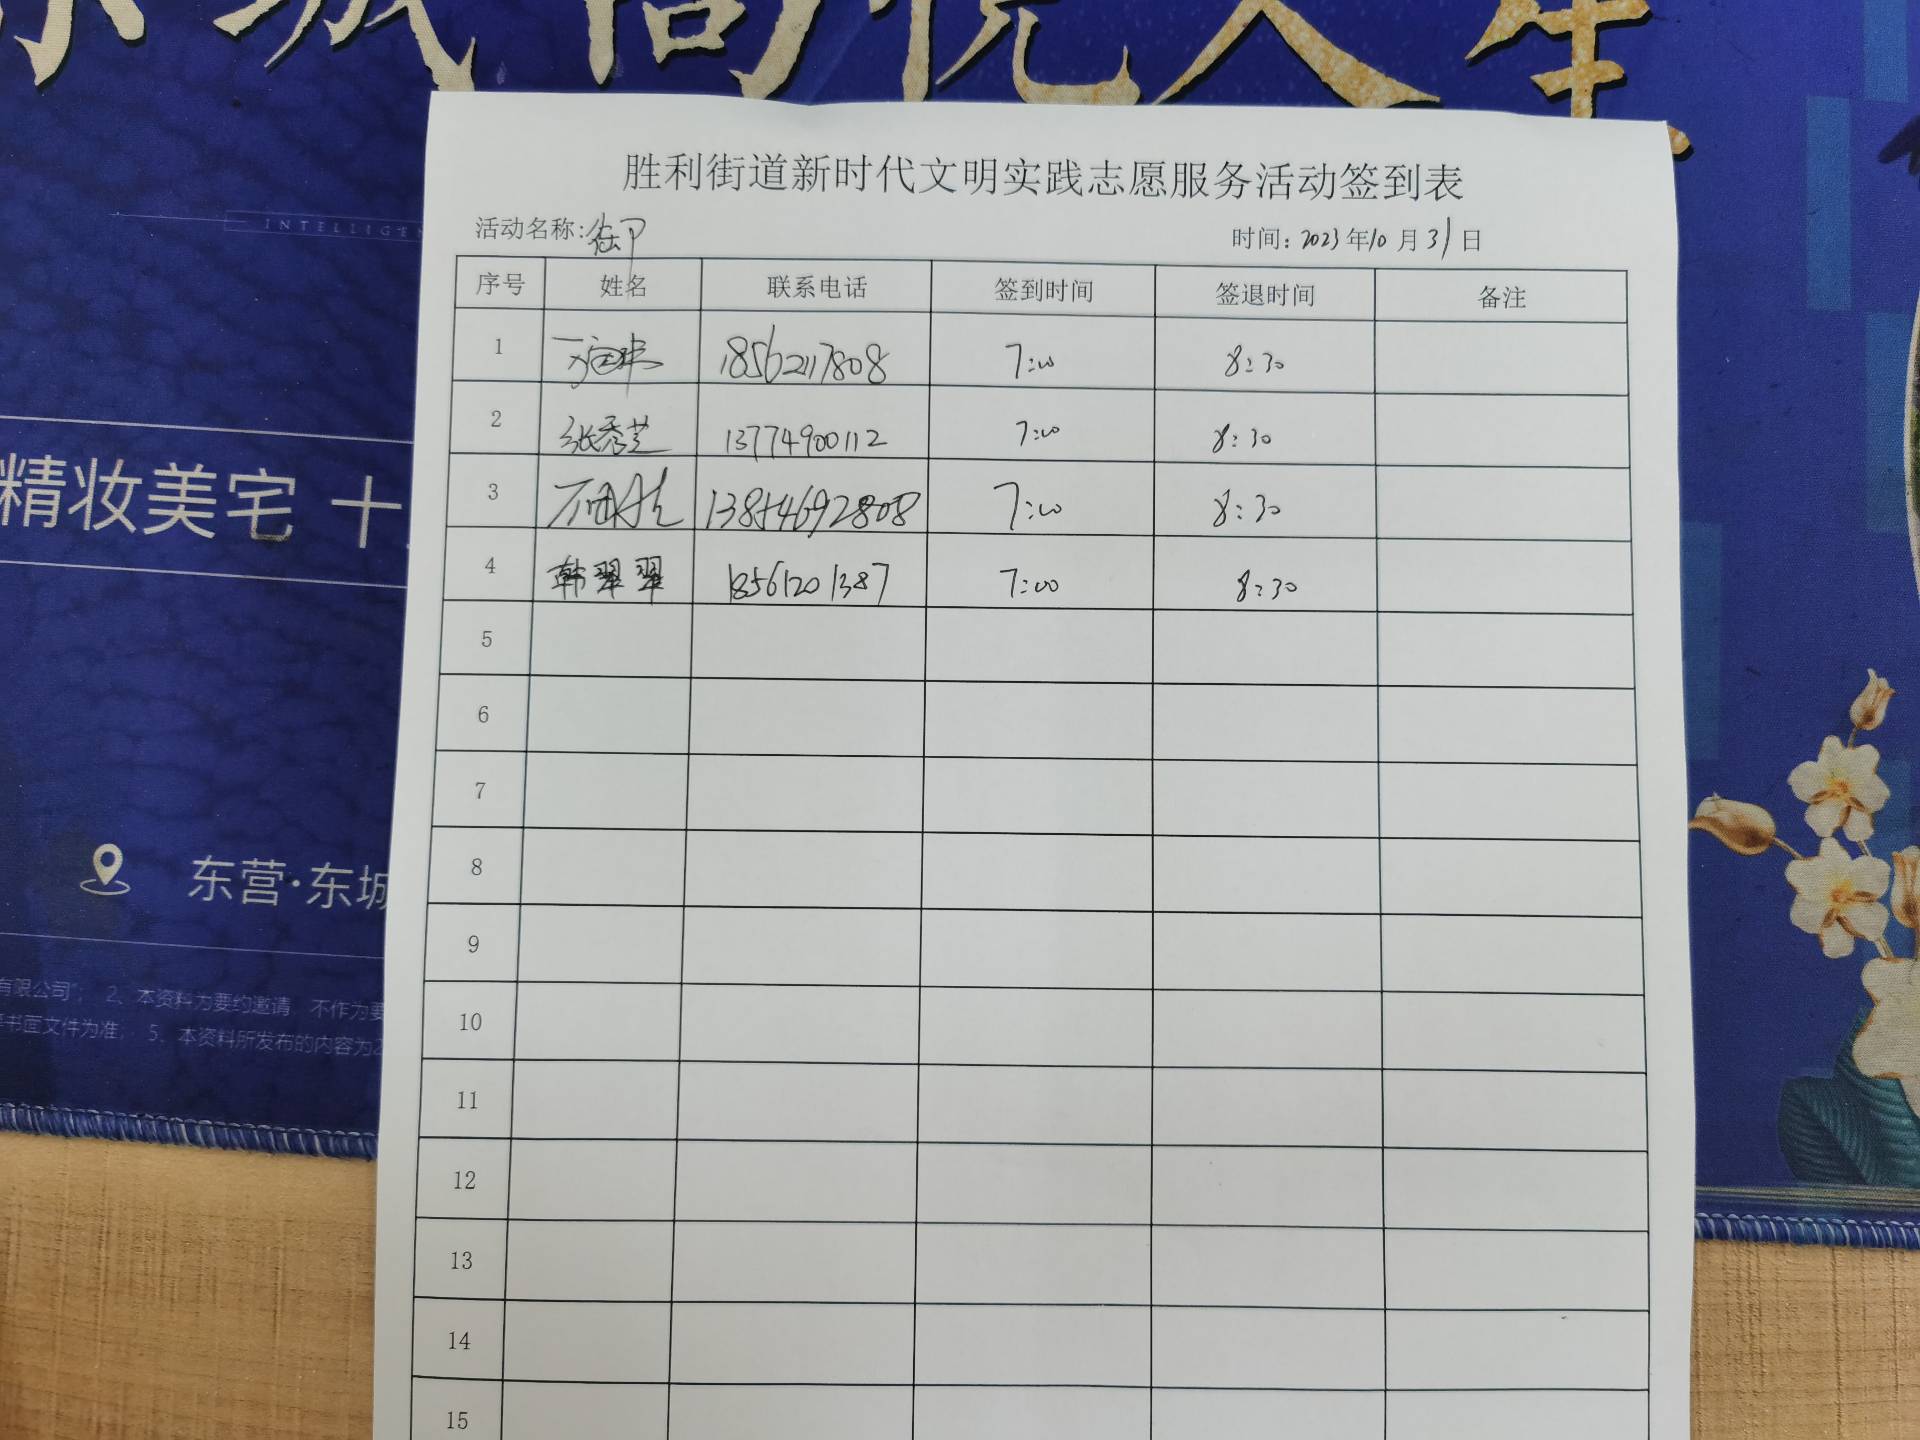 INTELLIGEN
精妆美宅 十
东营·东城
有限公司”； 2、本资料为要约邀请，不作为要
书面文件为准； 5、本资料所发布的内容为2
胜利街道新时代文明实践志愿服务活动签到表
活动名称: 时间: 2023年10月31日
序号 姓名 联系电话 签到时间 签退时间 备注
1 18562117808 7:00 8:30
2 张秀芝 13774900112 7:00 8:30
3 13854692808 7:00 8:30
4 韩翠翠 18561201387 7:00 8:30
5
6
7
8
9
10
11
12
13
14
15